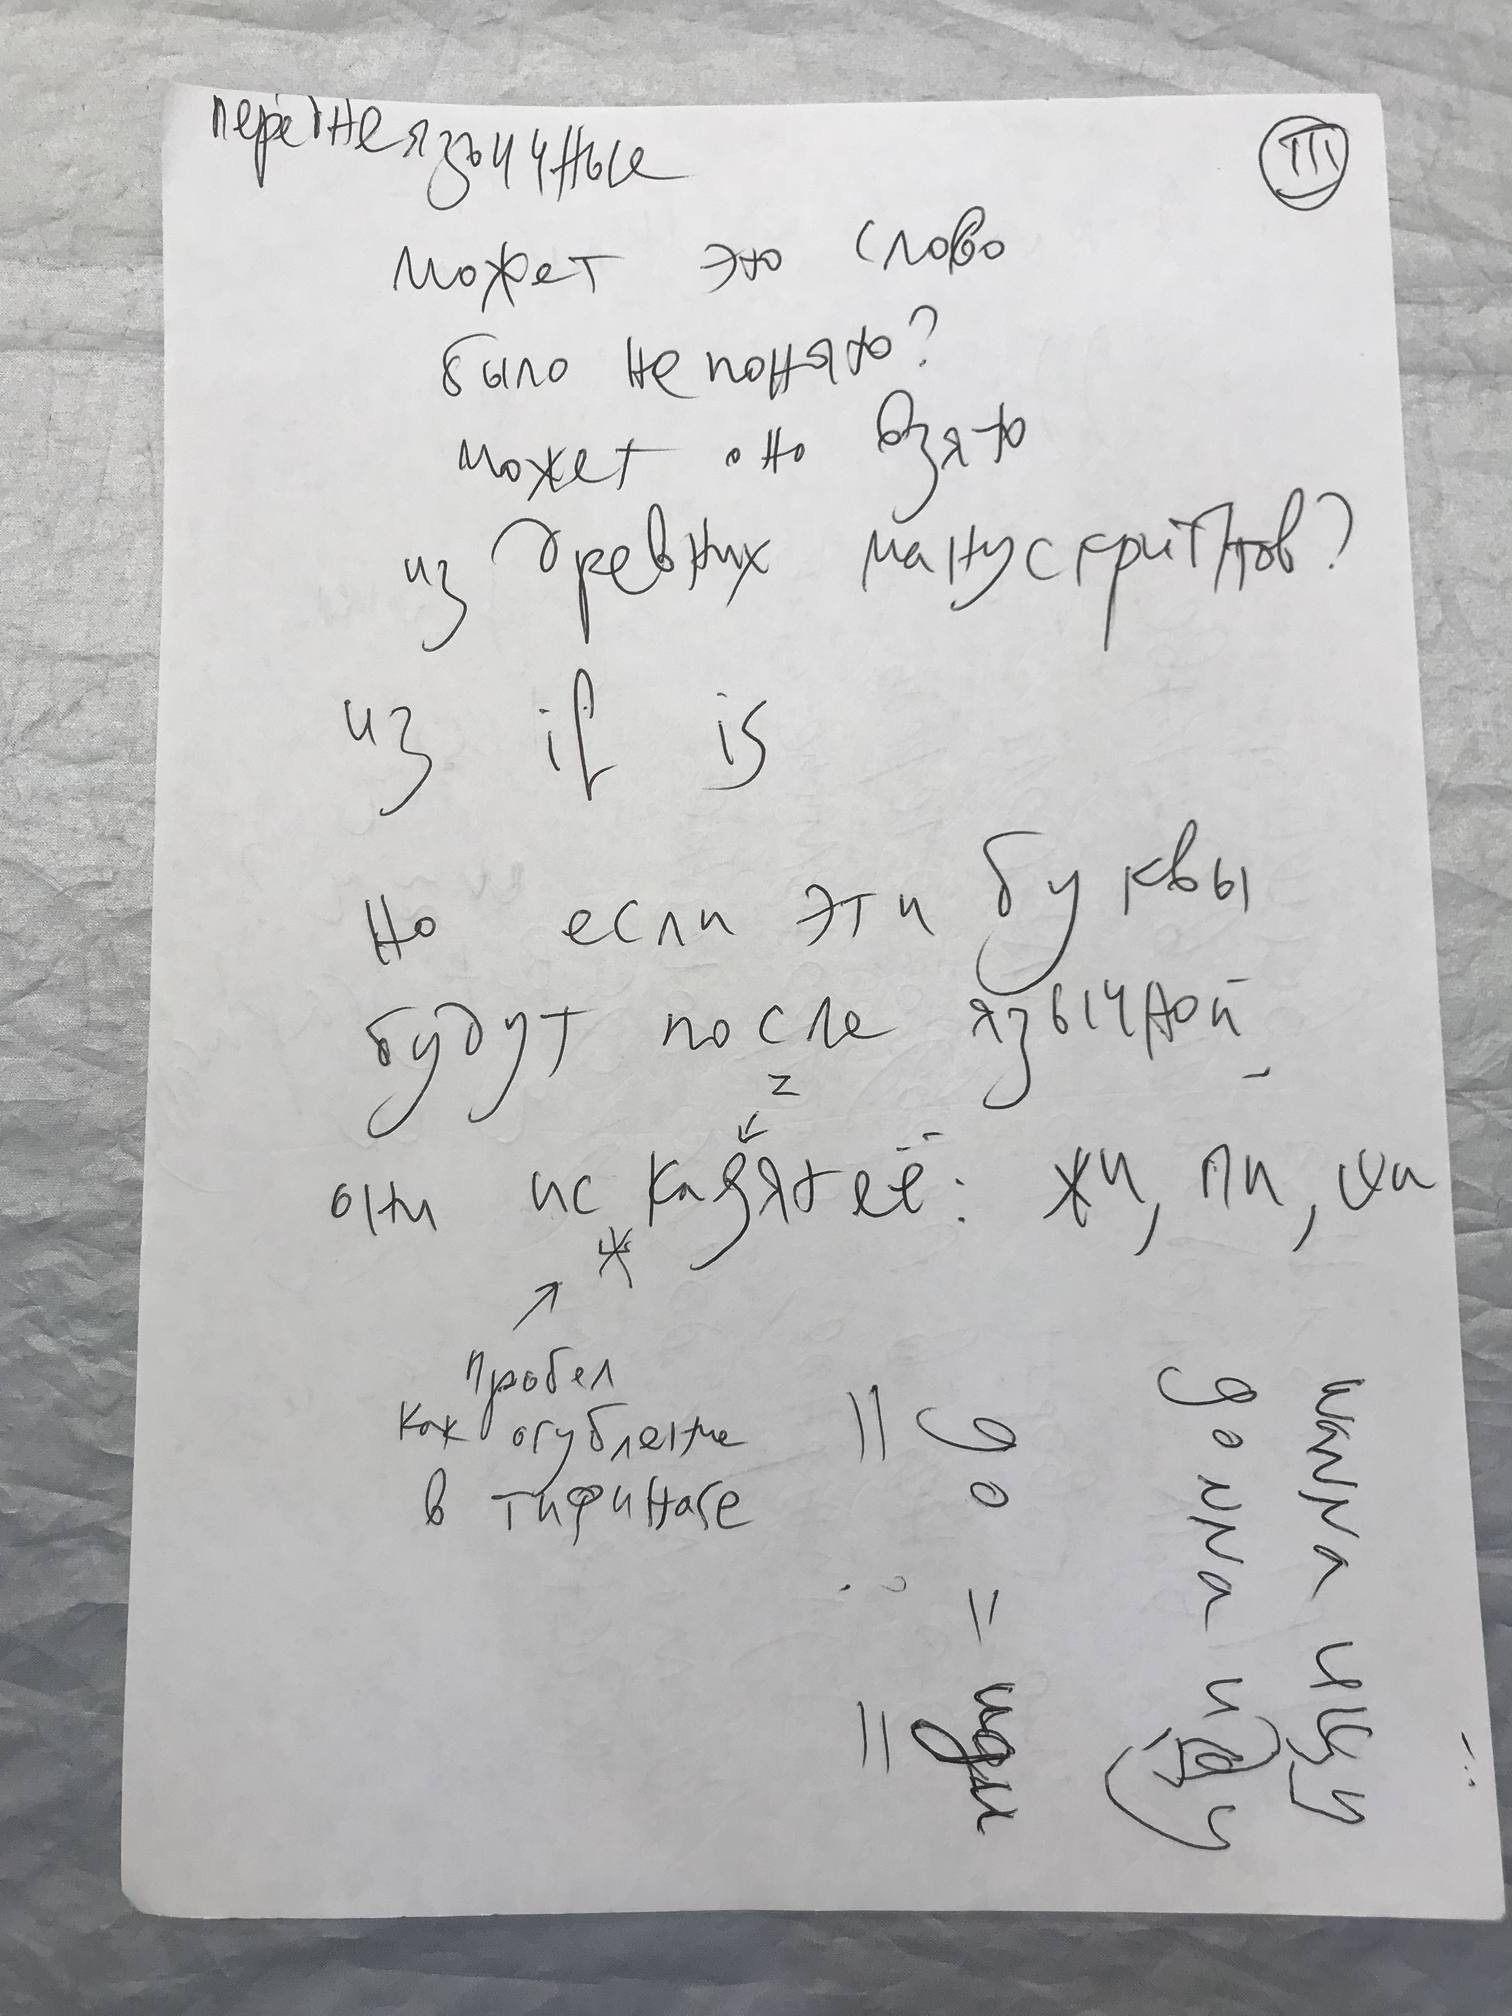 переднеязычные
III
может это слово
было не понято?
может оно взято
из древних манускриптов?
из if is
но если эти буквы
будут после язычной
z
они ис казят её: жи, пи, ии
ж
пробел
как огубление
в тифинаге
wanna ищу
gonna иду
go = иди
= =